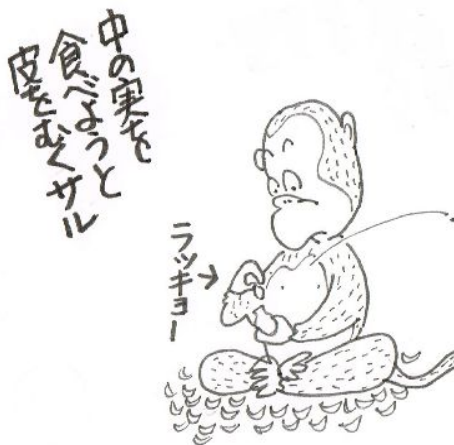 中の実を
食べようと
皮をむくサル
ラッキョー